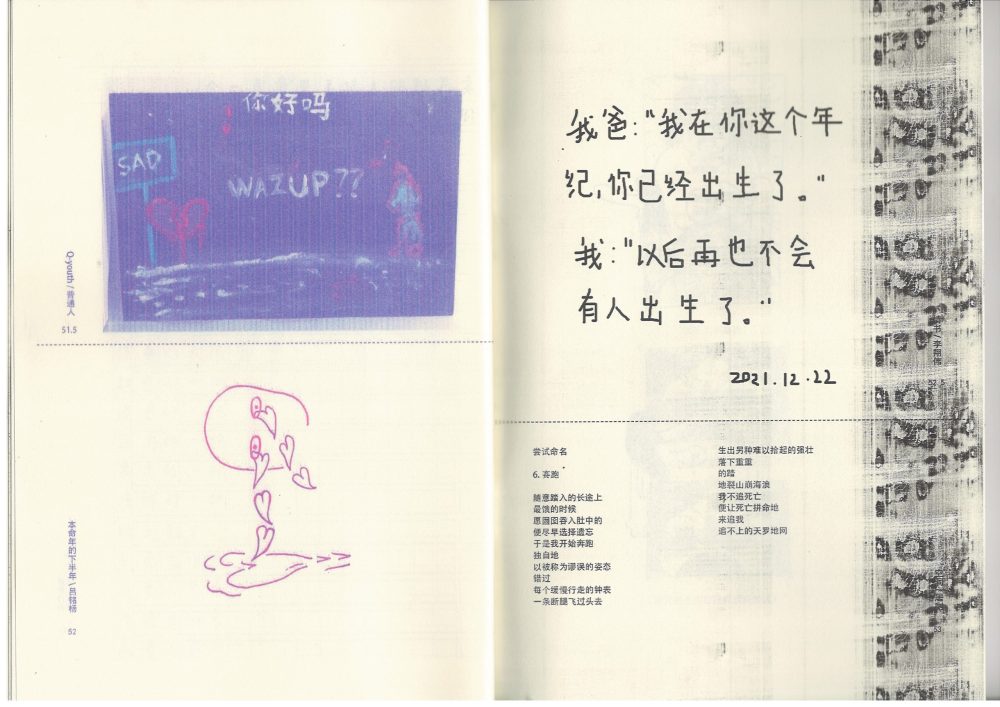 你好吗
SAD
WAZUP??
Q-youth / 普通人
51.5
本命年的下半年 \ 吕铭杨
52
我爸:“我在你这个年
纪,你已经出生了。”
我:“以后再也不会
有人出生了。”
2021.12.22
尝试命名
6. 奔跑
随意踏入的长途上
最饿的时候
愿囫囵吞入肚中的
便尽早选择遗忘
于是我开始奔跑
独自地
以被称为谬误的姿态
错过
每个缓慢行走的钟表
一条断腿飞过头去
生出另种难以拾起的强壮
落下重重
的踏
地裂山崩海浪
我不追死亡
便让死亡拼命地
来追我
追不上的天罗地网
书 / 李翔伟
52.5
53